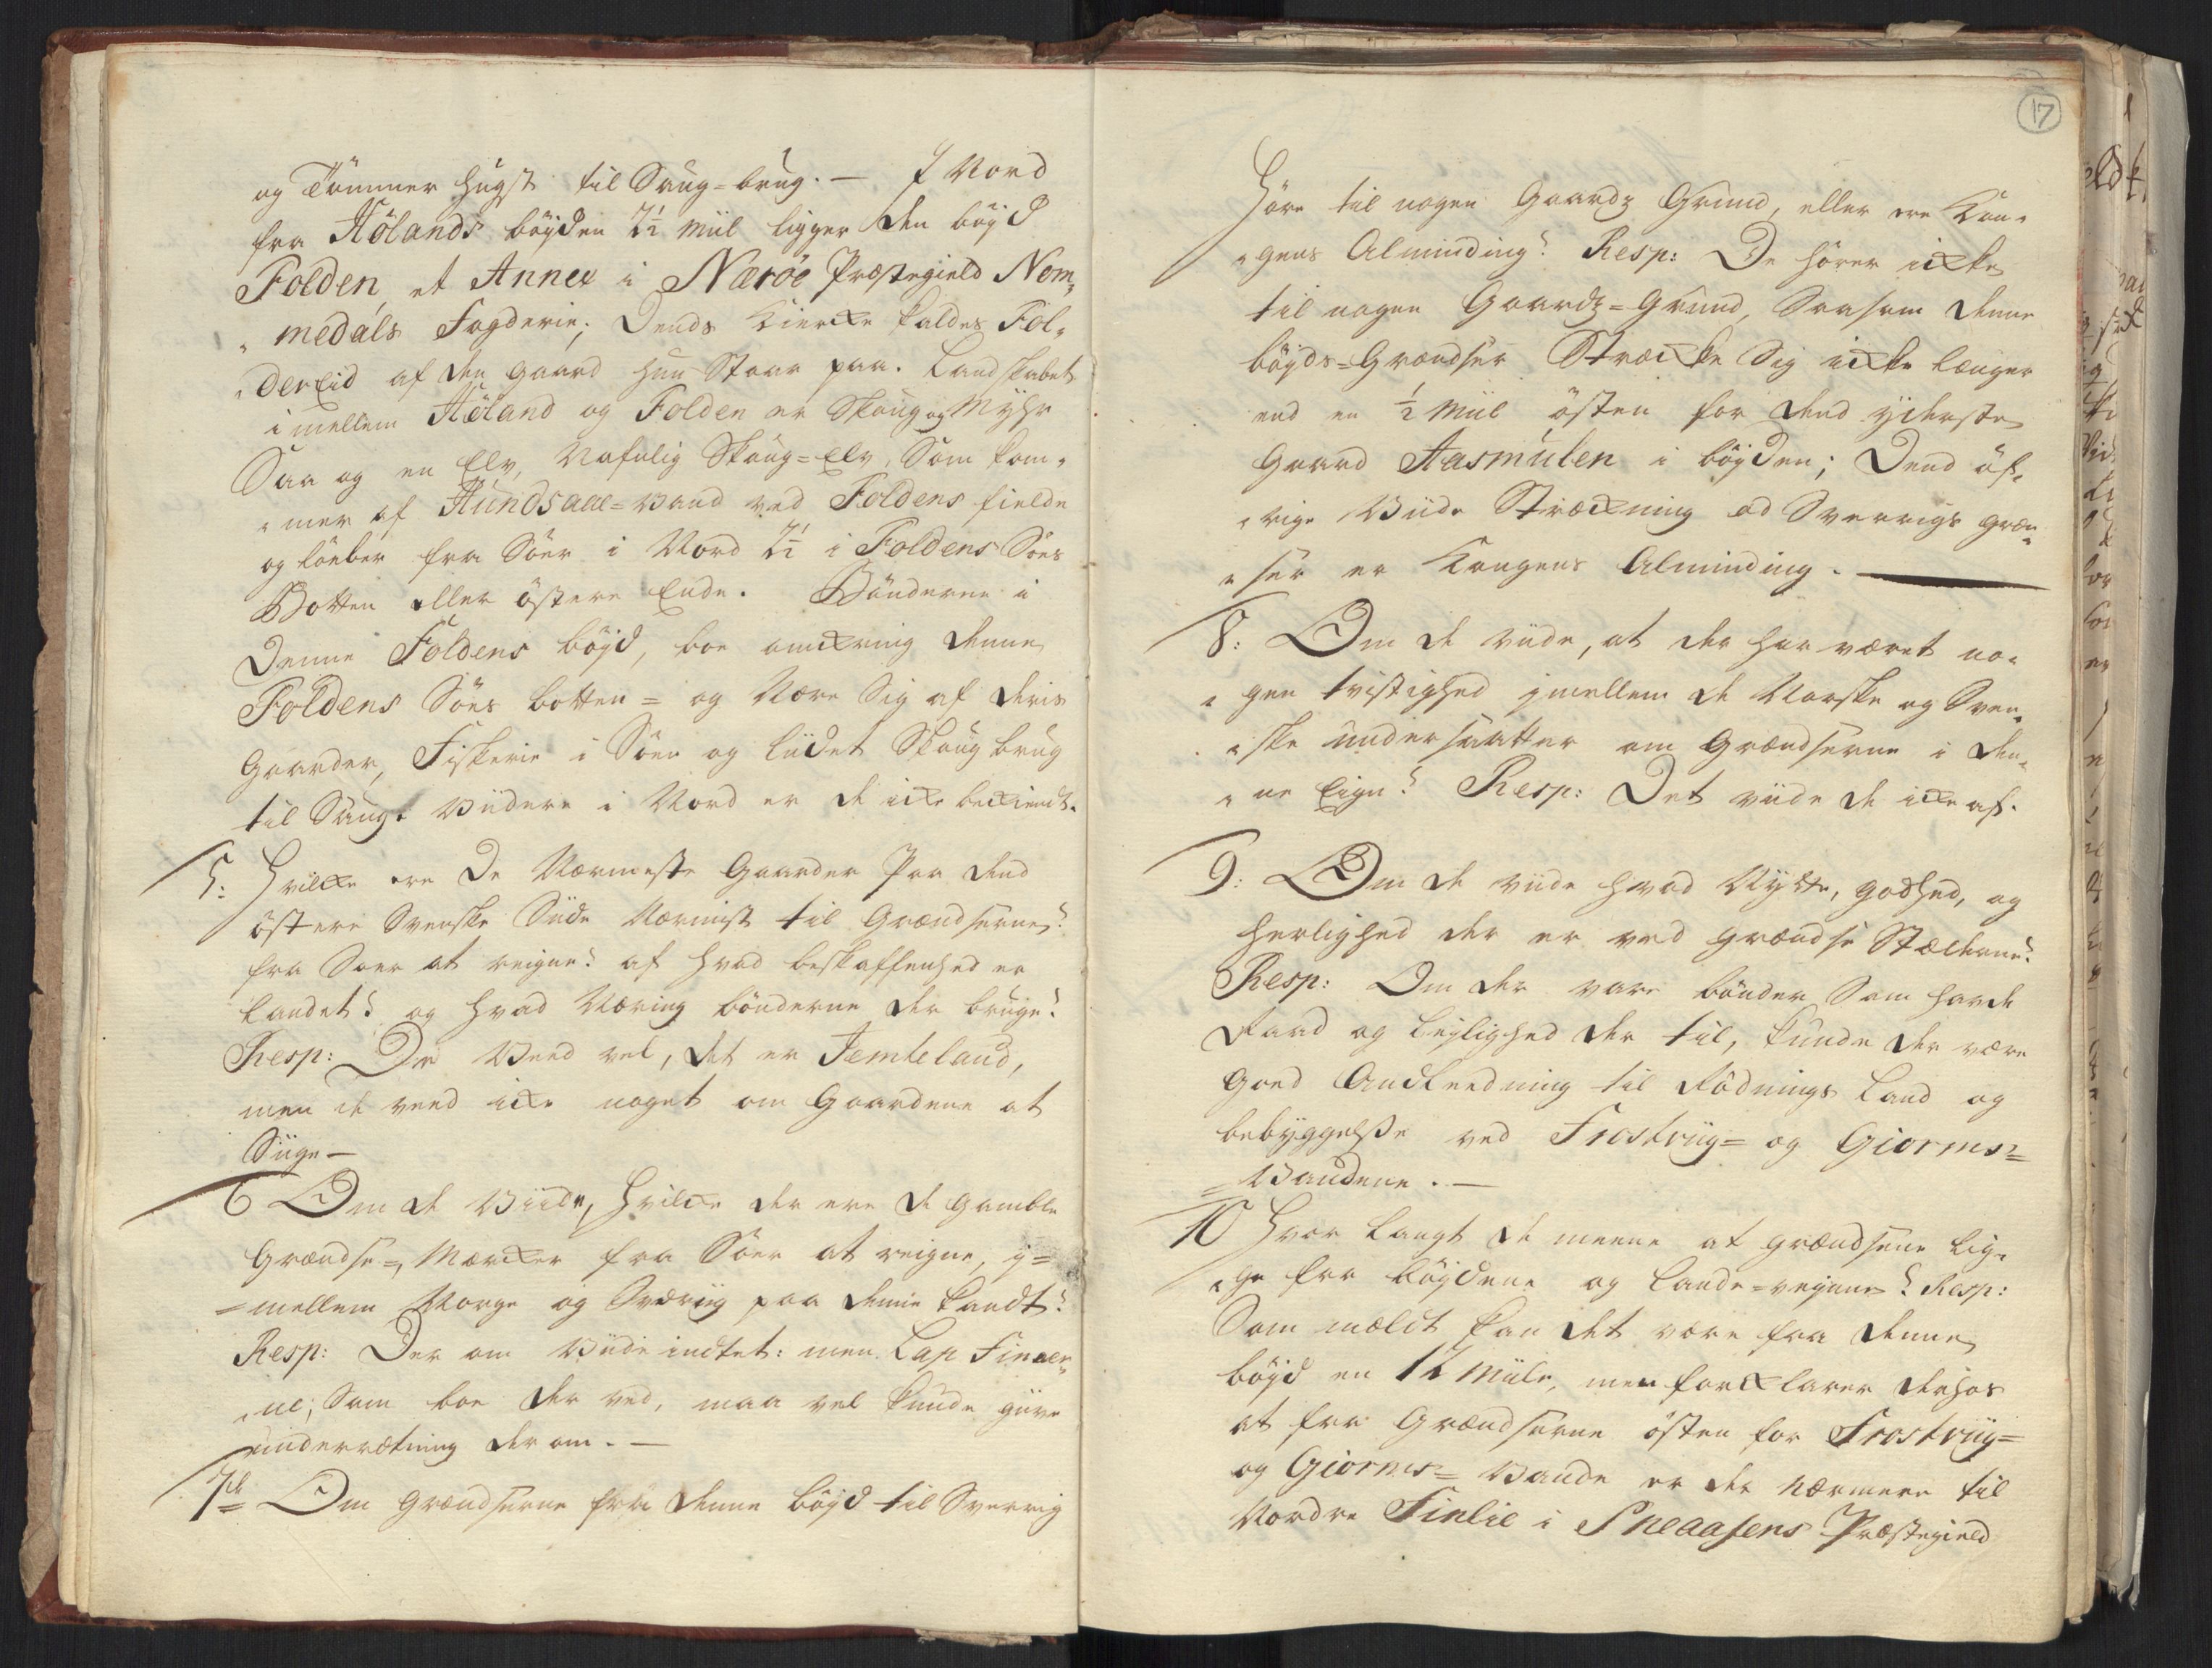 og Tømmer hugst til Saug=brug. — I Nord
fra Hölands böyden 2½ Miil ligger den böyd
Folden, et Annex i Nærøe Præstegield Nom„
„medals Fogderie; Dends Kiercke kaldes Fol„
„dereid af den gaard hun Staar paa. Landskabet
imellem Höland og Folden er Skoug og Myhr
Saa og en Elv, Skoug=Elv, Som kom„
„mer af Hundsaae=Vand ved Foldens fielde
og löeber fra Söer i Nord 2½ i Foldens Söes
Botten eller östere Ende. Bönderne i
Denne Foldens böyd, boe omkring denne
Foldens Söes botten= og Nære Sig af deris
Gaarder, Fiskerie i Söen og liidet Skoug brug
til Saug. Viidere i Nord er de icke bekiendt.
5: Hvilcke ere De Nærmeste Gaarder Paa dend
östere Svenske Siide Nærmist til Grændserne?
fra Söer at reigne? af hvad beskaffenhed er
Landet? og hvad Næring bönderne der bruger?
Resp: De Veed vel, det er Jemteland,
men de veed icke noget om Gaardene at
Siige —
6 Om de Viide, hvilcke der ere de gamble
Grændse=Mærcker fra Söer at reigne, i=
=mellem Norge og Sverrig paa denne kandt?
Resp: Der om Viide indtet: men Lap Finner„
„ne, Som boe der ved, maa vel kunde give
underrætning der om. —
7de Om Grændserne fra denne böyd til Sverrig
17
Höre til nogen Gaardz Grund, eller ere Kon„
„gens Alminding? Resp: De hörer icke
til nogen Gaardz=Grund, Saasom denne
böyds=Grændser Strecke Sig icke længer
end en ½ Miil östen for dend yderste
Gaard Aasmulen i böyden; Dend öf„
„rige Viide Streckning ad Sverrigs græn„
„ser er Kongens Alminding. —
8: Om de viide, at der har været no„
„gen tvistighed imellem de Norske og Sven„
„ske undersaatter om Grændserne i den„
„ne Eign? Resp: Det viide de icke af.
9: Om de viide hvad Nytte, godhed, og
herlighed der er ved grændse Stæderne?
Resp: Om der vare bönder Som havde
Raad og Leylighed der til, kunde der være
Goed Anledning til Rödnings Land og
bebyggelsße ved Frostviig= og Giorms=
=Vandene. —
10 Hvor langt de meene at grændsene lig„
„ge fra böydene og Lande=veyene? Resp:
Som meldt kan det være fra denne
böyd en 12 Miile, men forklarer derhos
at fra Grændserne östen for Frostviig=
og Giorms=Vande er det nærmere til
Nordre Finlie i Sneaasens Præstegield